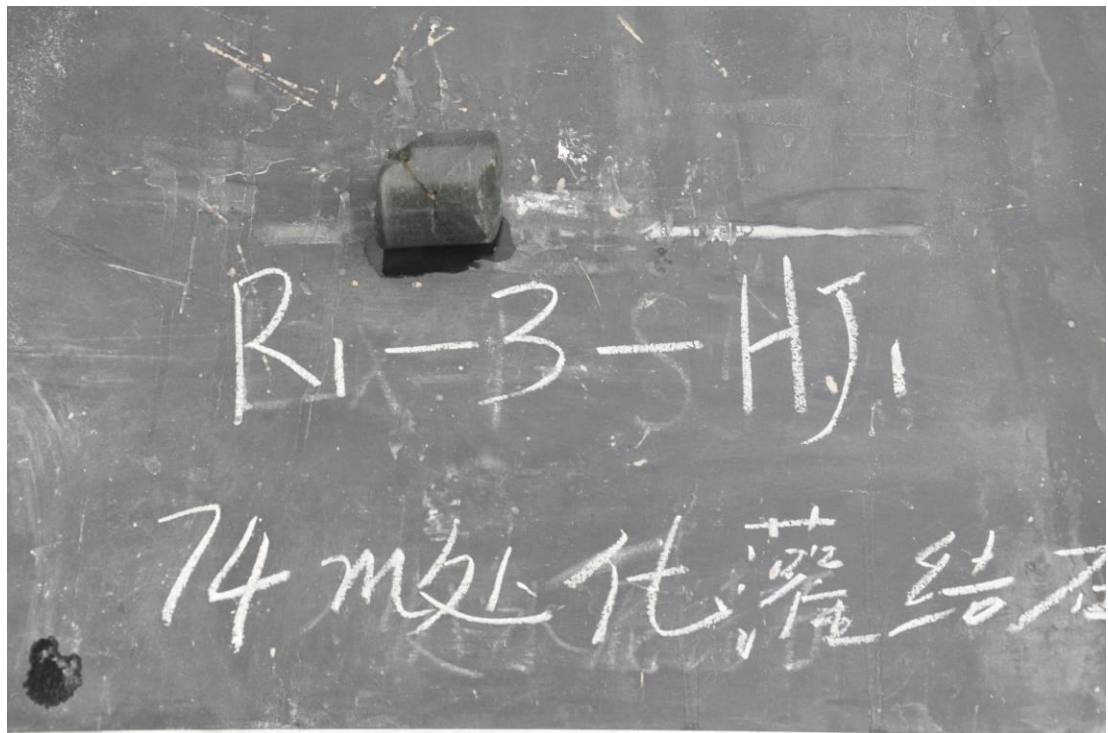 R1-3-HJ1
74m处化灌结石